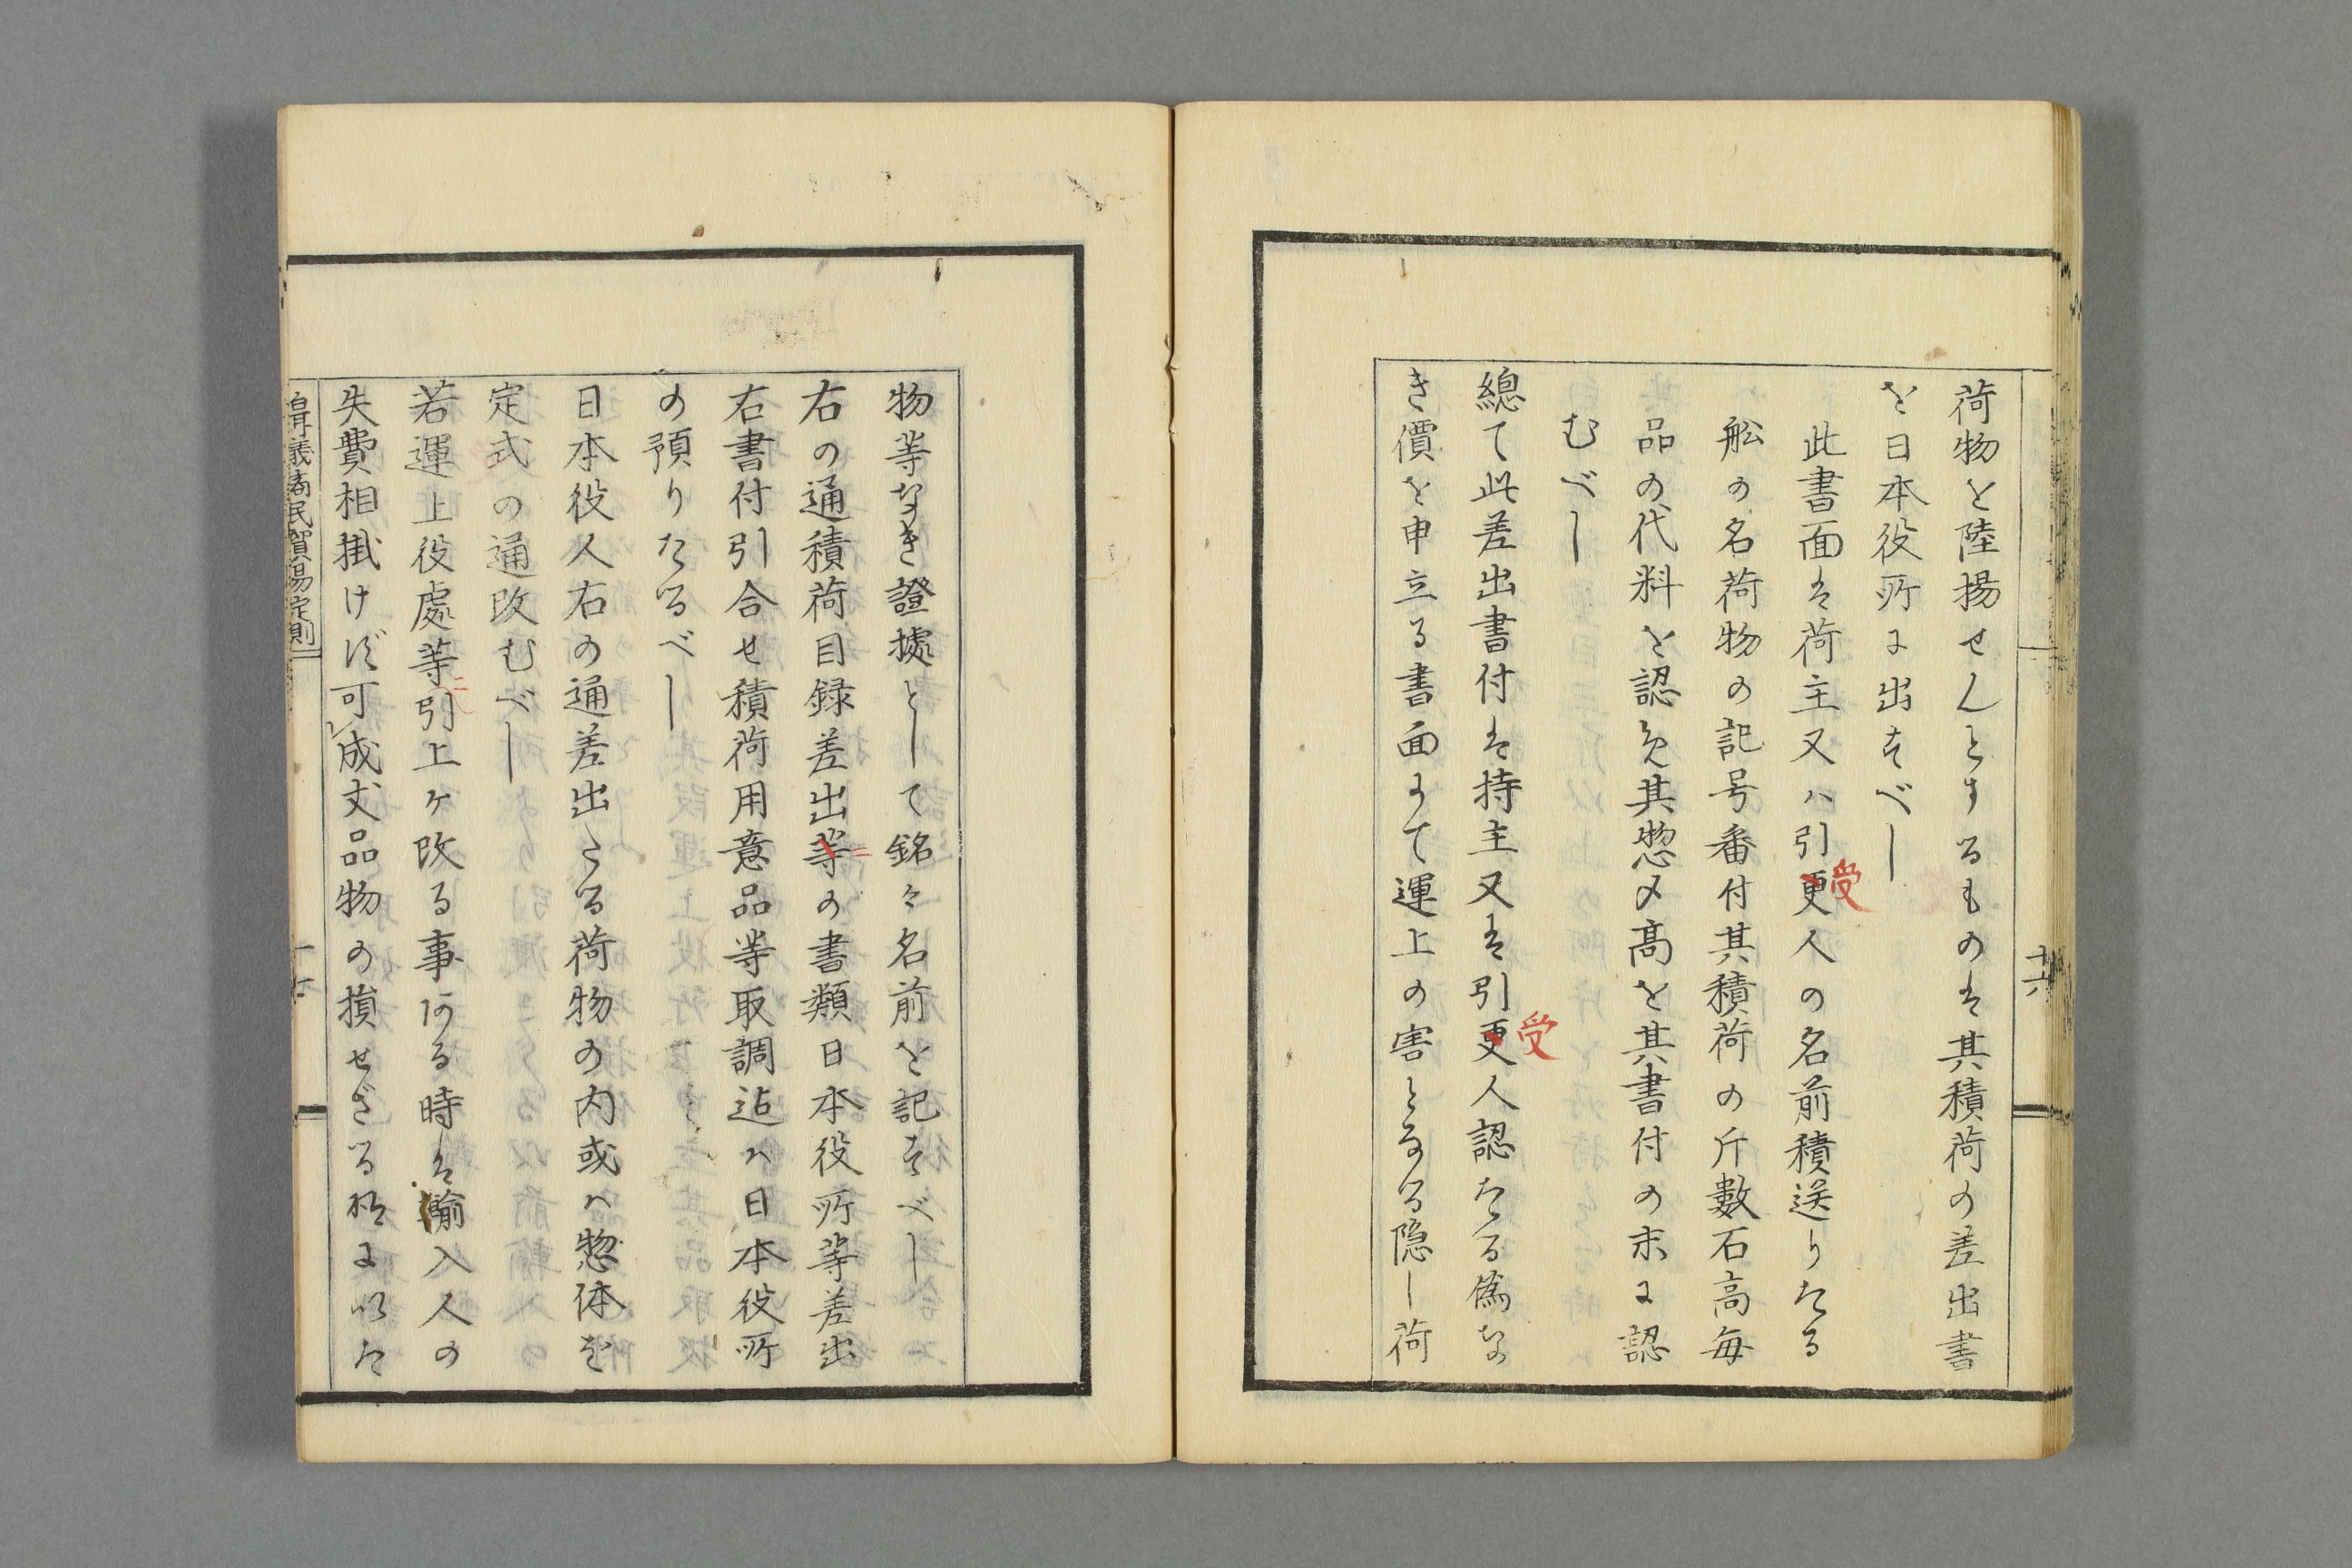 荷物を陸揚せんとするものは其積荷の差出書
を日本役所に出すべし
此書面は荷主又ハ引更人の名前積送りたる
受
舩の名荷物の記号番付其積荷の斤數石高毎
品の代料を認め其惣〆高を其書付の末に認
むべし
總て此差出書付は持主又は引更人認たる偽な
受
き價を申立る書面にて運上の害となる隠し荷
十六
物等なき證據として銘々名前を記すべし
右の通積荷目録差出等の書類日本役所等差出
右書付引合せ積荷用意品等取調迠ハ日本役所
の預りたるべし
日本役人右の通差出たる荷物の内或ハ惣体を
定式の通改むべし
若運上役處等引上ケ改る事ある時は輸入人の
失費相掛けず可成丈品物の損せざる様に以た
義商民貿易定則